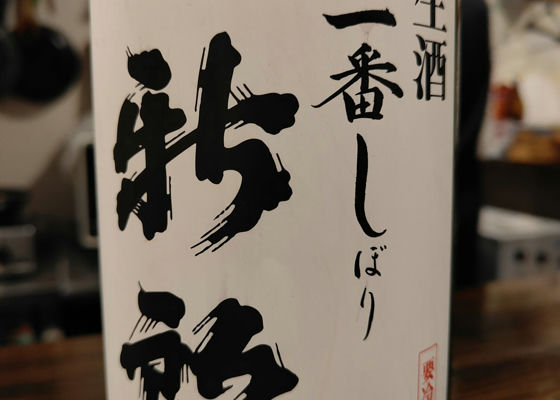 生酒
一番しぼり
新
要冷